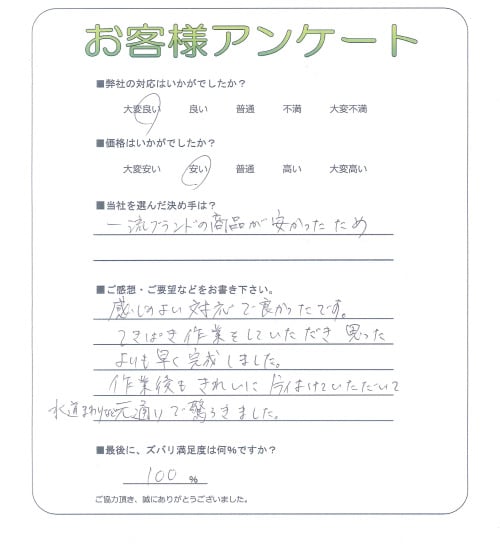 お客様アンケート
■弊社の対応はいかがでしたか？
大変良い 良い 普通 不満 大変不満
■価格はいかがでしたか？
大変安い 安い 普通 高い 大変高い
■当社を選んだ決め手は？
一流ブランドの商品が安かったため
■ご感想・ご要望などをお書き下さい。
感じのよい対応で良かったです。
てきぱき作業をしていただき思った
よりも早く完成しました。
作業後もきれいに片付けていただいて
水道まわりなど元通りで驚きました。
■最後に、ズバリ満足度は何%ですか？
100 %
ご協力頂き、誠にありがとうございました。